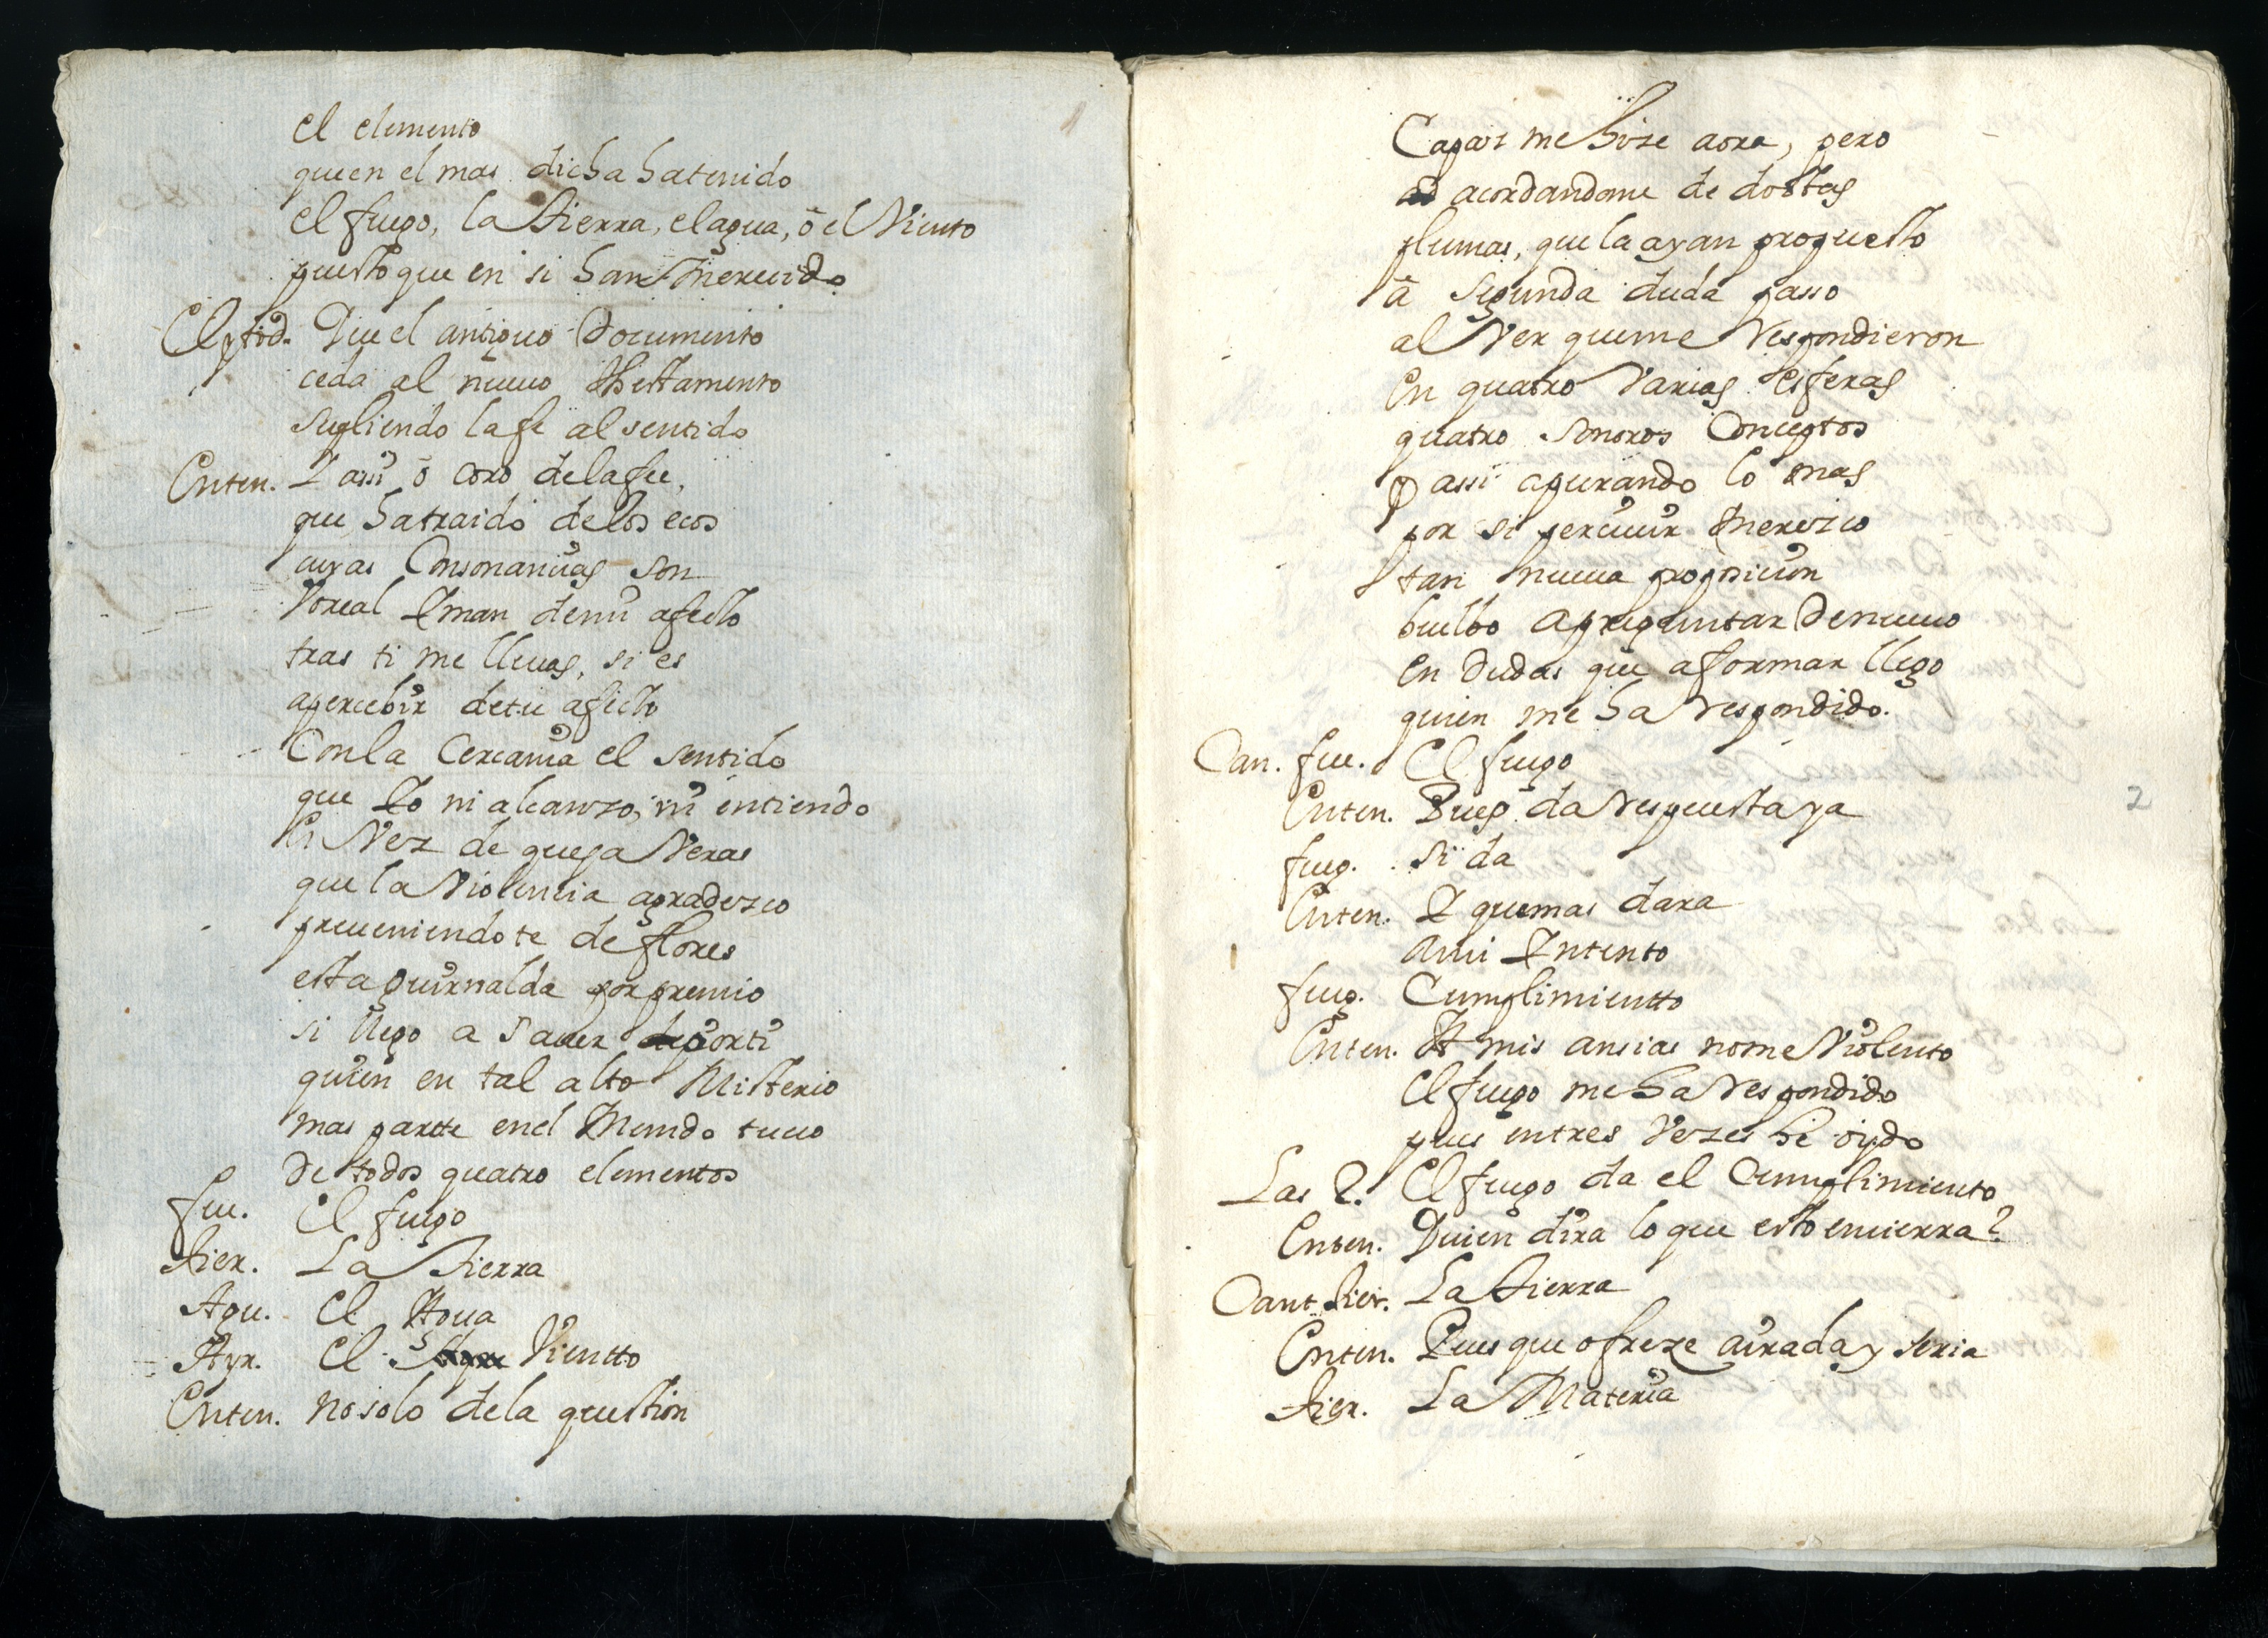 el elemento
que en el mas dicha ha tenido
el fuego, la tierra, el agua, ò el Viento
puesto que en si han merecido
El y tod. Que el antiguo Documento
ceda al nueuo thestamento
supliendo la fe al sentido
Enten. I assi ô coro de la fee,
que ha traido de los ecos
cuyas Consonancias son
Voreal Iman de mi afecto
tras ti me lleuas, si es
a percebir de tu afecto
Con la Cercania el sentido
que Io ni alcanzo, ni entiendo
En Vez de queja Veras
que la Violencia agradezco
preueniendote de flores
esta guirnalda por premio
si llego a Sauer por ti
quien en tal alto Misterio
mas partte en el Mundo tuuo
De todos quatro elementos
fue. El fuego
tier. La tierra
Agu. El Agua
Ayr. El Ayre Vientto
Enten. no solo de la question
1
Capaz me hize aora, pero
acordandome de doctas
plumas, que la ayan propuesto
â segunda duda passo
al Ver que me respondieron
En quatro Varias Esferas
quatro sonoros Conceptos
Y assi apurando lo mas
por si perciuir merezco
tan nueua proposicion
buelbo a preguntar De nueuo
en Dudas que a formar llego
quien me ha respondido.
Can. fue. El fuego
Enten. Pues da respuesta ya
fueg. Si da
Enten. I que mas dara
a mi Intento
fueg. Cumplimientto
Enten. A mis ansias no me Violento
El fuego me ha respondido
pues en tres Vezes he oydo
Las 2. El fuego da el Cumplimiento
Enten. Quien dira lo que esto encierra?
Cant. tier. La tierra
Enten. Pues que ofreze airada y seria
tier. La Materia
2